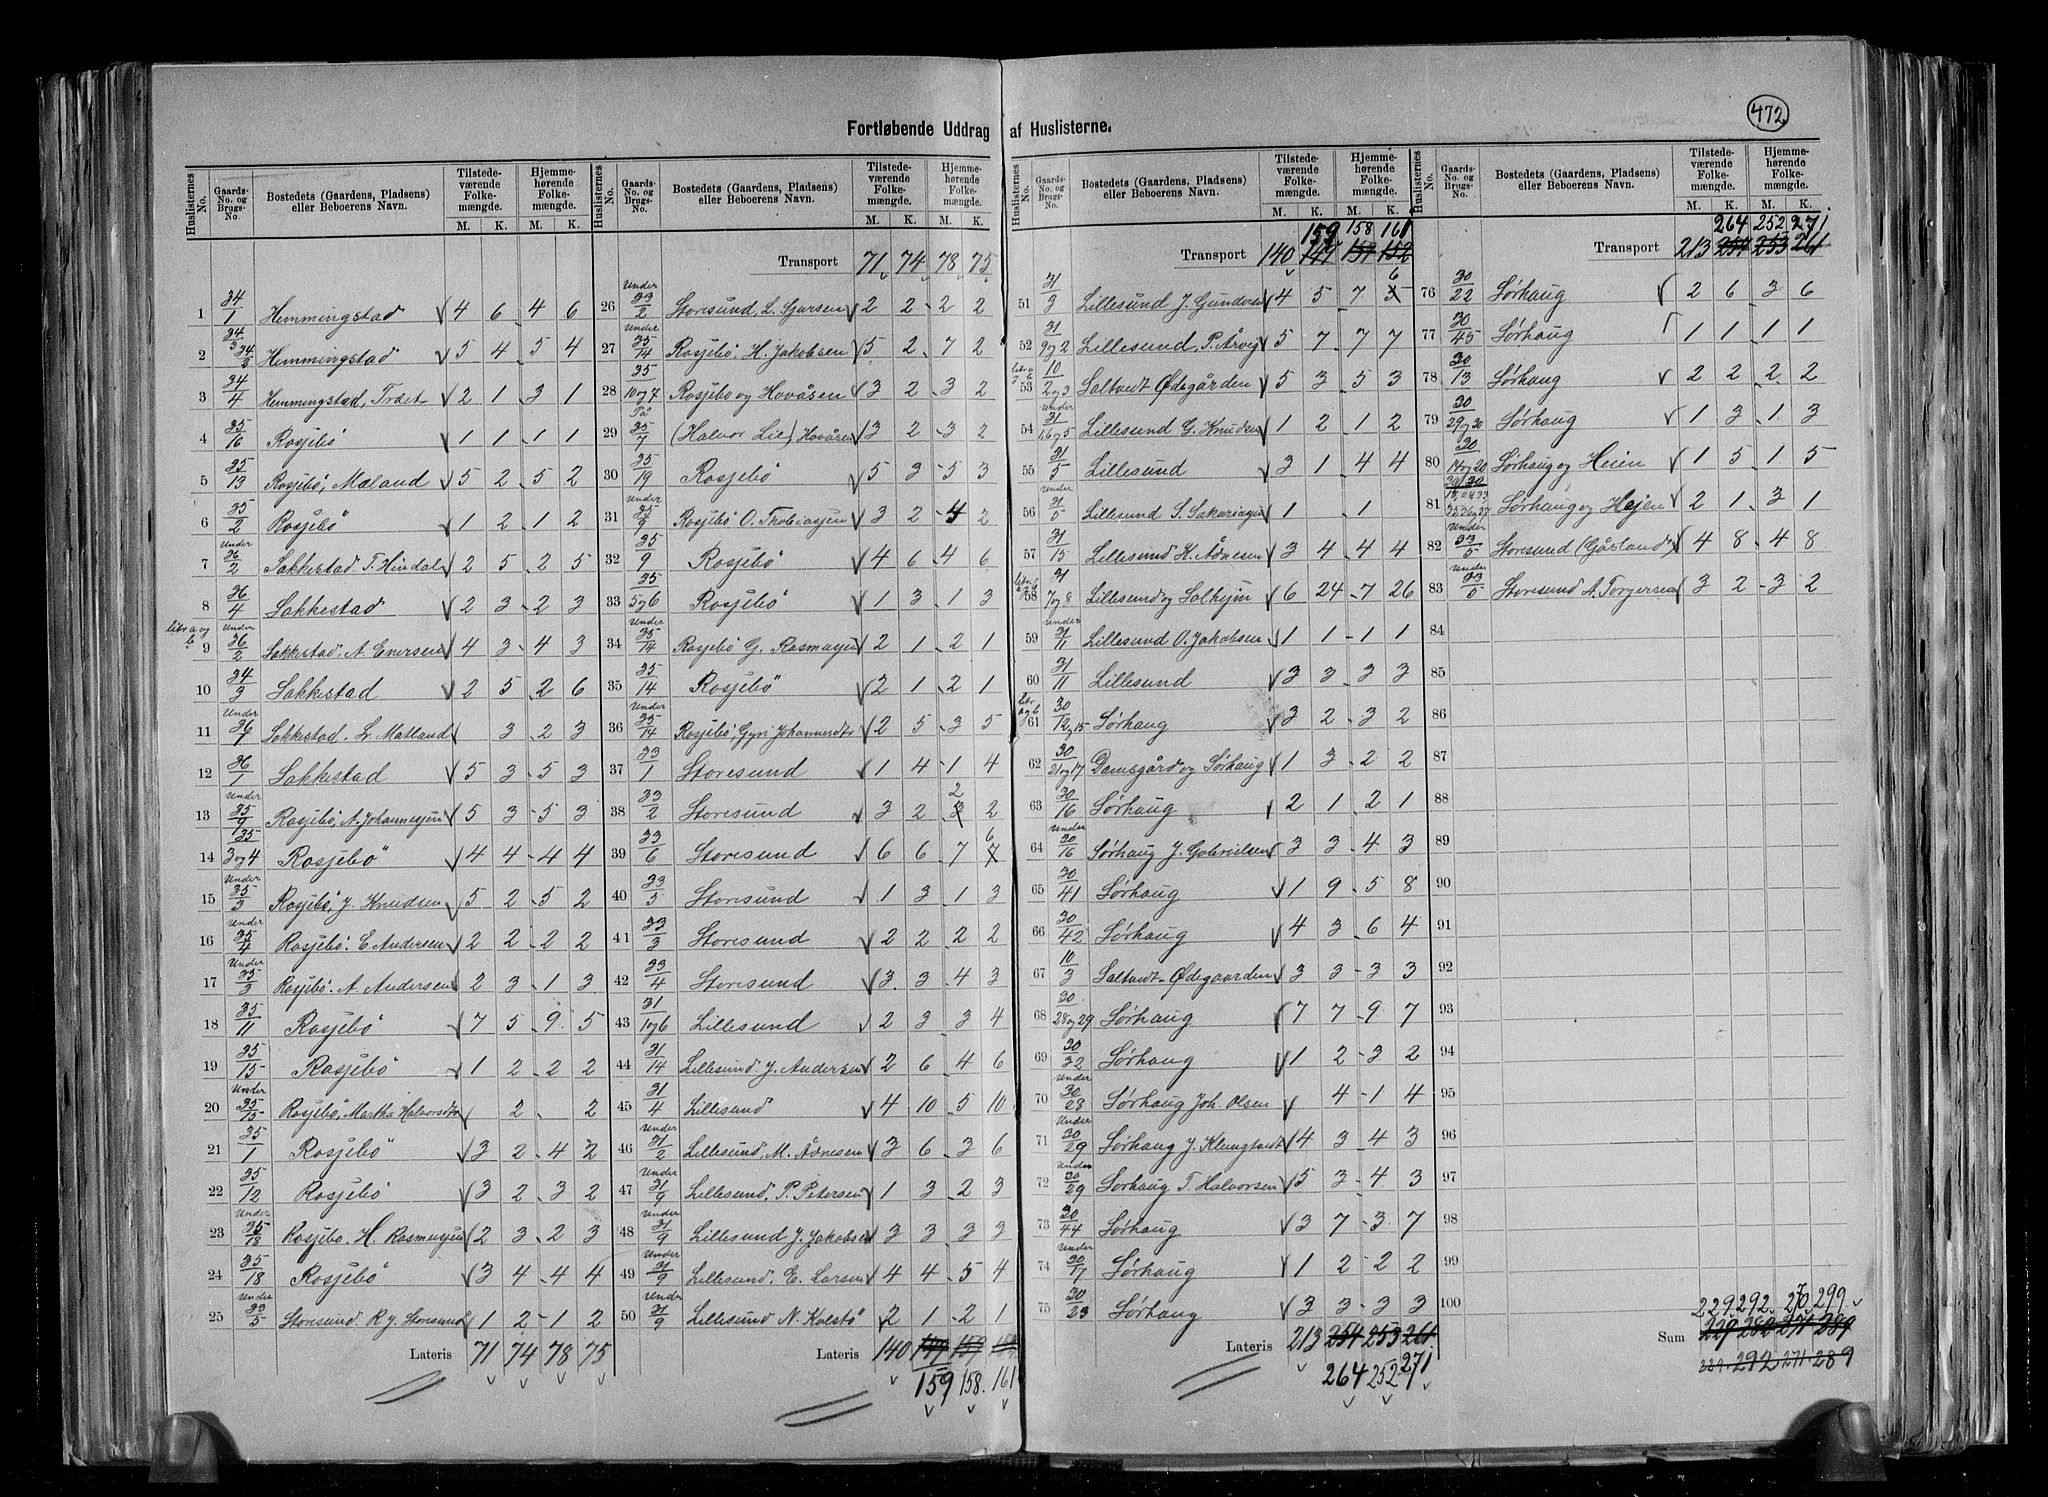 472
Fortløbende Uddrag af Huslisterne.
Huslisternes No. | Gaards-No. og Brugs-No. | Bostedets (Gaardens, Pladsens) eller Beboerens Navn. | Tilstedeværende Folkemængde. M. K. | Hjemmehørende Folkemængde. M. K.
1 34/1 Hemmingstad 4 6 4 6
2 34/3 34/2 Hemmingstad 5 4 5 4
3 34/4 Hemmingstad, Træet 2 1 3 1
4 35/16 Rosjebö 1 1 1 1
5 35/13 Rosjebö, Mæland 5 2 5 2
6 35/2 Rosjebö 1 2 1 2
7 Under 36/2 Sakkestad T. Hindal 2 5 2 5
8 36/4 Sakkestad 2 3 2 3
litr a og b 9 Under 36/2 Sakkestad, A. Enersen 4 3 4 3
10 34/3 Sakkestad 2 5 2 6
11 Under 36/1 Sakkestad. L. Matland 3 2 3
12 36/1 Sakkestad 5 3 5 3
13 Under 35/9 Rosjebö, A. Johannesjen 5 3 5 3
14 35/3og4 Rosjebö 4 4 4 4
15 Under 35/3 Rosjebö, J. Knudsen 5 2 5 2
16 Under 35/4 Rosjebö. E. Andersen 2 2 2 2
17 Under 35/3 Rosjebö. A. Andersen 2 3 1 3
18 35/11 Rosjebö 7 5 9 5
19 35/15 Rosjebö 1 2 2 2
20 Under 35/15 Rosjebö, Martha Halvorsdtr 2 2
21 35/1 Rosjebö 3 2 4 2
22 35/12 Rosjebö 3 2 3 2
23 Under 35/18 Rosjebö. H. Rasmusjen 2 3 2 3
24 35/18 Rosjebö 3 4 4 4
25 Under 33/5 Storesund. R. J. Storesund 1 2 1 2
Lateris 71 74 78 75
Huslisternes No. | Gaards-No. og Brugs-No. | Bostedets (Gaardens, Pladsens) eller Beboerens Navn. | Tilstedeværende Folkemængde. M. K. | Hjemmehørende Folkemængde. M. K.
Transport 71 74 78 75
26 Under 33/2 Storesund, L. Sjursen 2 2 2 2
27 Under 35/14 Rosjebö, H. Jakobsen 5 2 7 2
28 35/10og7 Rosjebö og Hovåsen 3 2 3 2
29 På 35/7 (Halvor Lie) Hovåsen 3 2 3 2
30 35/19 Rosjebö 5 3 5 3
31 Under 35/9 Rosjebö O. Thobiasjen 3 2 4 2
32 35/9 Rosjebö 4 6 4 6
33 35/5og6 Rosjebö 1 3 1 3
34 Under 35/14 Rosjebö G. Rasmusjen 2 1 2 1
35 35/14 Rosjebö 2 1 2 1
36 Under 35/14 Rosjebö, Gyri Johannesdtr 2 5 3 5
37 33/1 Storesund 1 4 1 4
38 33/2 Storesund 3 2 3 2 2
39 33/6 Storesund 6 6 7 7 6
40 33/5 Storesund 1 3 1 3
41 33/3 Storesund 2 2 2 2
42 33/4 Storesund 3 3 4 3
43 31/1og6 Lillesund 2 3 3 4
44 31/14 Lillesund. J. Andersen 2 6 4 6
45 31/4 Lillesund 4 10 5 10
46 Under 31/2 Lillesund, M. Ådnesen 3 6 3 6
47 Under 31/9 Lillesund, P. Petersen 1 3 2 3
48 Under 31/9 Lillesund J. Jakobsen 3 3 3 3
49 Under 31/9 Lillesund. E. Larsen 4 4 5 4
50 Under 31/9 Lillesund N. Kvestö 2 1 2 1
Lateris 140 149 159
159 158. 161
Huslisternes No. | Gaards-No. og Brugs-No. | Bostedets (Gaardens, Pladsens) eller Beboerens Navn. | Tilstedeværende Folkemængde. M. K. | Hjemmehørende Folkemængde. M. K.
159 158 161
Transport 140 149 159 152
51 31/3 Lillesund J. Gundersen 4 5 7 5 6
52 31/9og2 Lillesund, P. Årvig 5 7 7 7
53 10/2og3 Saltvedt Ødegården 5 3 5 3
54 Under 31/16og5 Lillesund G. Knudsen 1 2 1 2
55 31/5 Lillesund 3 1 4 4
56 Under 31/5 Lillesund S. Sakariasjen 1 1
57 31/15 Lillesund K. Ådnesen 3 4 4 4
58 31/7og8 Lillesund og Solhejm 6 24 7 26
59 Under 31/11 Lillesund O. Jakobsen 1 1 1 1
60 31/11 Lillesund 3 3 3 3
litr a og b 61 30/12og15 Sørhaug 3 2 3 2
62 30/21og17 Damsgård og Sørhaug 1 3 2 2
63 30/16 Sørhaug 2 1 2 1
64 Under 30/16 Sørhaug J. Gabrielsen 3 3 4 3
65 30/41 Sørhaug 1 9 5 8
66 30/42 Sørhaug 4 3 6 4
67 10/3 Saltvedt Ødegaarden 3 3 3 3
68 30/28og29 Sørhaug 7 7 9 7
69 30/32 Sørhaug 1 2 3 2
70 Under 30/28 Sørhaug Joh. Olsen 4 1 4
71 Under 30/29 Sørhaug J. Klungtvedt 4 3 4 3
72 Under 30/29 Sørhaug T. Halvorsen 5 3 4 3
73 30/44 Sørhaug 3 7 3 7
74 Under 30/17 Sørhaug 1 2 2 2
75 30/23 Sørhaug 3 3 3 3
Lateris 213 254 253 261
264 252 271
Huslisternes No. | Gaards-No. og Brugs-No. | Bostedets (Gaardens, Pladsens) eller Beboerens Navn. | Tilstedeværende Folkemængde. M. K. | Hjemmehørende Folkemængde. M. K.
264 252 271
Transport 213 254 253 261
76 30/22 Sørhaug 2 6 3 6
77 30/45 Sørhaug 1 1 1 1
78 30/13 Sørhaug 2 2 2 2
79 30/29og30 Sørhaug 1 3 1 3
80 30/14og20 Sørhaug og Heien 1 5 1 5
81 Sørhaug og Hejen 2 1 3 1
82 Under 33/5 Storesund (Gåsland) 4 8 4 8
83 Under 33/5 Storesund A. Torgersen 3 2 3 2
84
85
86
87
88
89
90
91
92
93
94
95
96
97
98
99
100
229. 292. 270 299
Sum 229 282 271 289
229. 292 271. 289